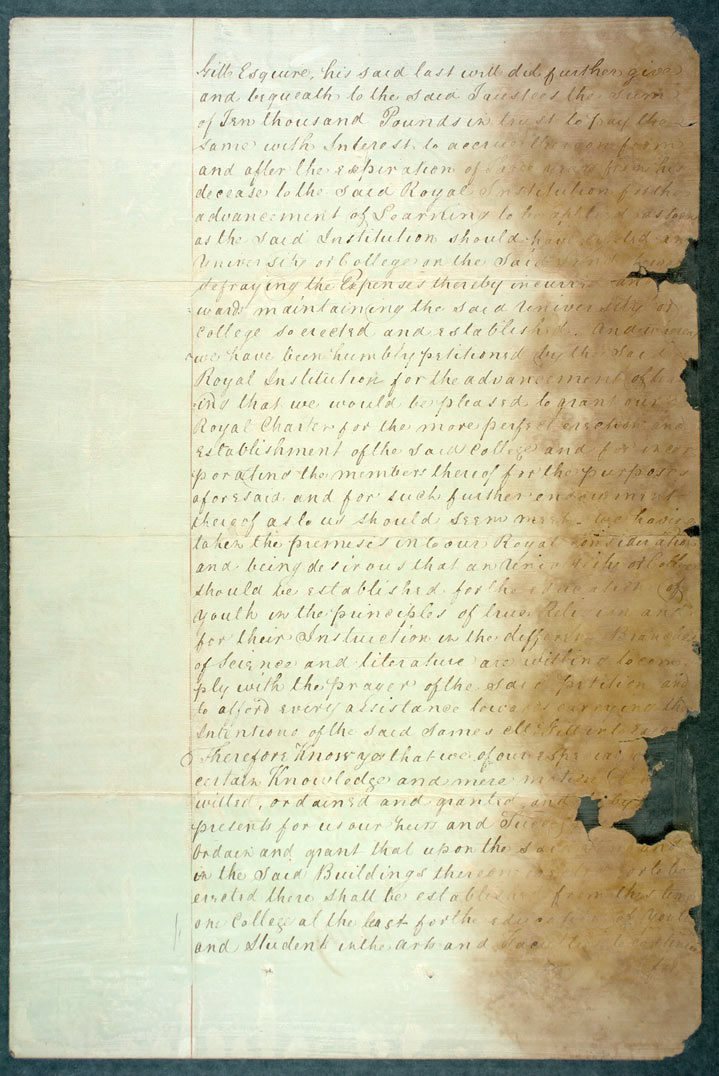 Gill Esquire, his said last will did further give
and bequeath to the said Trustees the sum
of Ten thousand Pounds in trust to pay the
same with Interest to accrue thereon from
and after the expiration of years from his
decease to the said Royal Institution for the
advancement of Learning to be applied as soon
as the said Institution should have erected an
University or College on the said
defraying the Expenses thereby incurred an
wards maintaining the said University or
College so erected and established. And whereas
we have been humbly petitioned by the said
Royal Institution for the advancement of lear
ing that we would be pleased to grant our
Royal Charter for the more perfect erection and
establishment of the said College and for incor
porating the members thereof for the purposes
aforesaid and for such further
thereof as to us should seem meet. We having
taken the premises into our Royal consideration
and being desirous that an University or College
should be established for the education of
Youth in the principles of true Religion and
for their Instruction in the different Branches
of Science and literature are willing to com
ply with the prayer of the said petition and
to afford every assistance towards carrying the
Intentions of the said James McGill into
Therefore Know ye that we of our especial
certain Knowledge and mere motion
willed, ordained and granted, and
presents for us our heirs and
Ordain and grant that upon the said
in the said Buildings thereon or to be
erected there shall be established from this
one College at the least for the education of Youth
and Students in the arts and